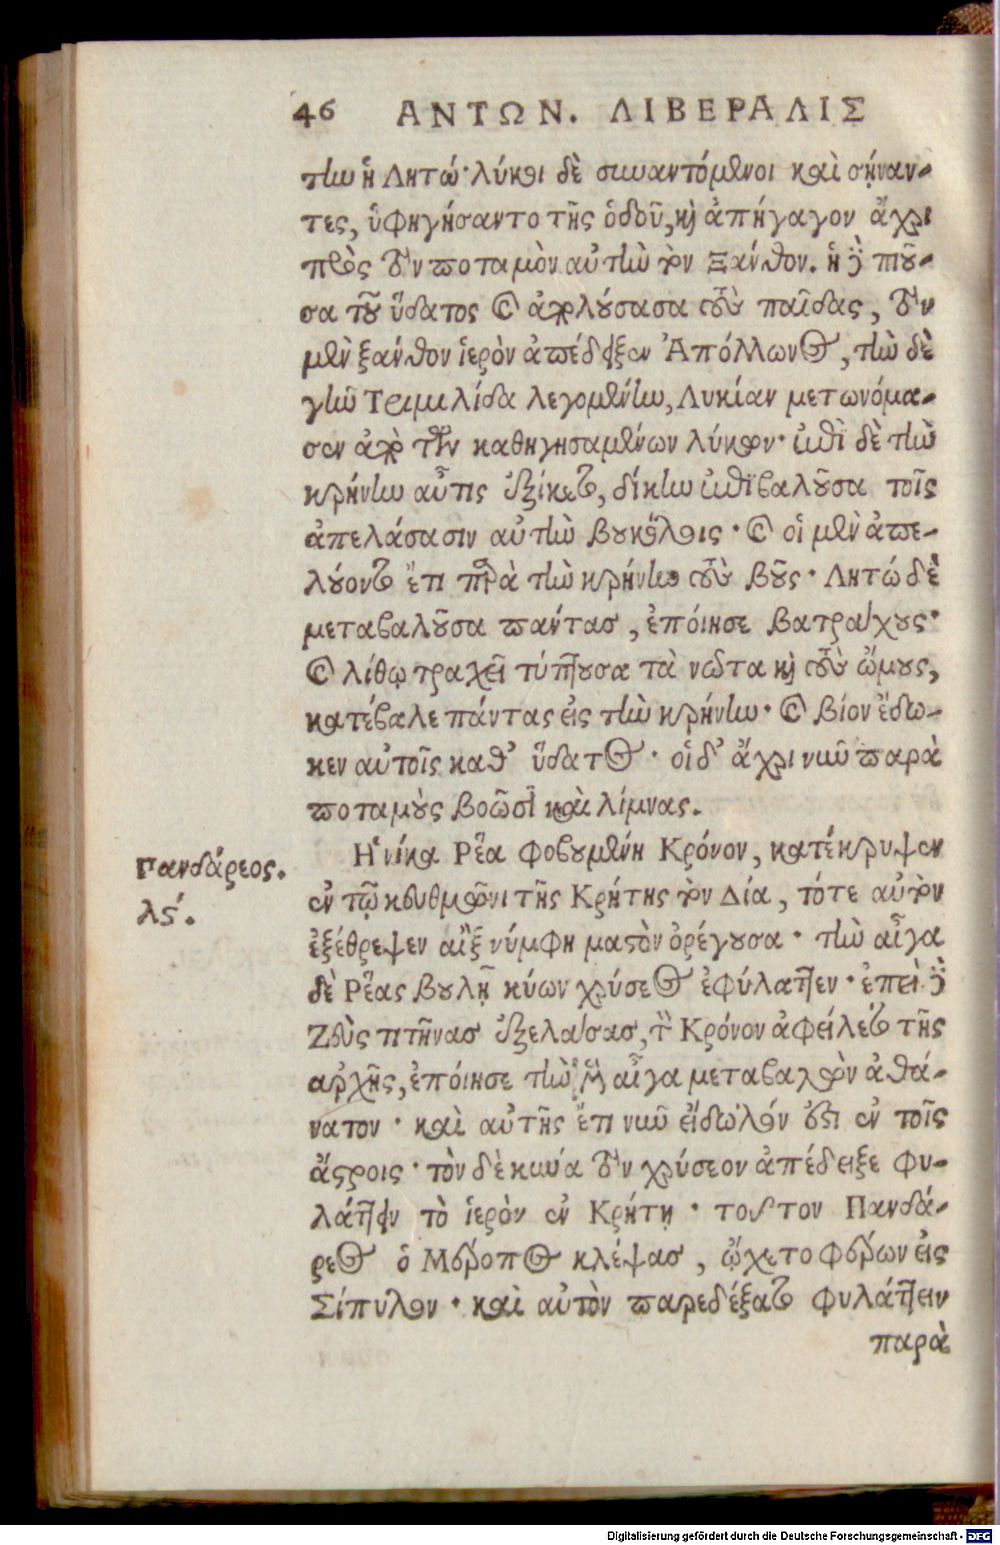 46 ΑΝΤΩΝ. ΛΙΒΕΡΑΛΙΣ
τὴν ἡ Λητώ· λύκοι δὲ συναντόμενοι καὶ σήναν-
τες, ὑφηγήσαντο τῆς ὁδοῦ, καὶ ἀπήγαγον ἄχρι
πρὸς τὸν ποταμὸν αὐτὴν τὸν Ξάνθον. ἡ δὲ πιοῦ-
σα τοῦ ὕδατος καὶ ἀπολούσασα τοὺς παῖδας, τὸν
μὲν ξάνθον ἱερὸν ἀπέδειξεν Ἀπόλλωνος, τὴν δὲ
γῆν Τρεμιλίδα λεγομένην, Λυκίαν μετωνόμα-
σεν ἀπὸ τῶν καθηγησαμένων λύκων· ἐπὶ δὲ τὴν
κρήνην αὖτις ἐξίκετο, δίκην ἐπιβαλοῦσα τοῖς
ἀπελάσασιν αὐτὴν βουκόλοις· καὶ οἱ μὲν ἀπε-
λύοντο ἔτι παρὰ τὴν κρήνην τοὺς βοῦς· Λητὼ δὲ
μεταβαλοῦσα πάντας, ἐποίησε βατράχους·
καὶ λίθῳ τραχεῖ τύπτουσα τὰ νῶτα καὶ τοὺς ὤμους,
κατέβαλε πάντας εἰς τὴν κρήνην· καὶ βίον ἔδω-
κεν αὐτοῖς καθ' ὕδατος· οἱ δ' ἄχρι νῦν παρὰ
ποταμοὺς βοῶσι καὶ λίμνας.
Πανδάρεος.
λϛ΄.
Ἡνίκα Ρέα φοβουμένη Κρόνον, κατέκρυψεν
ἐν τῷ κευθμῶνι τῆς Κρήτης τὸν Δία, τότε αὐτὸν
ἐξέθρεψεν αἲξ νύμφη μαστὸν ὀρέγουσα· τὴν αἶγα
δὲ Ρέας βουλῇ κύων χρύσεος ἐφύλαττεν· ἐπεὶ δὲ
Ζεὺς πτῆνας ἐξελάσας, τὸν Κρόνον ἀφείλετο τῆς
ἀρχῆς, ἐποίησε τὴν μὲν αἶγα μεταβαλὼν ἀθά-
νατον· καὶ αὐτῆς ἔτι νῦν εἴδωλόν ἐστι ἐν τοῖς
ἄστροις· τὸν δὲ κύνα τὸν χρύσεον ἀπέδειξε φυ-
λάττειν τὸ ἱερὸν ἐν Κρήτῃ· τοῦτον Πανδά-
ρεος ὁ Μέροπος κλέψας, ᾤχετο φέρων εἰς
Σίπυλον· καὶ αὐτὸν παρεδέξατο φυλάττειν
παρὰ
Digitalisierung gefördert durch die Deutsche Forschungsgemeinschaft - DFG